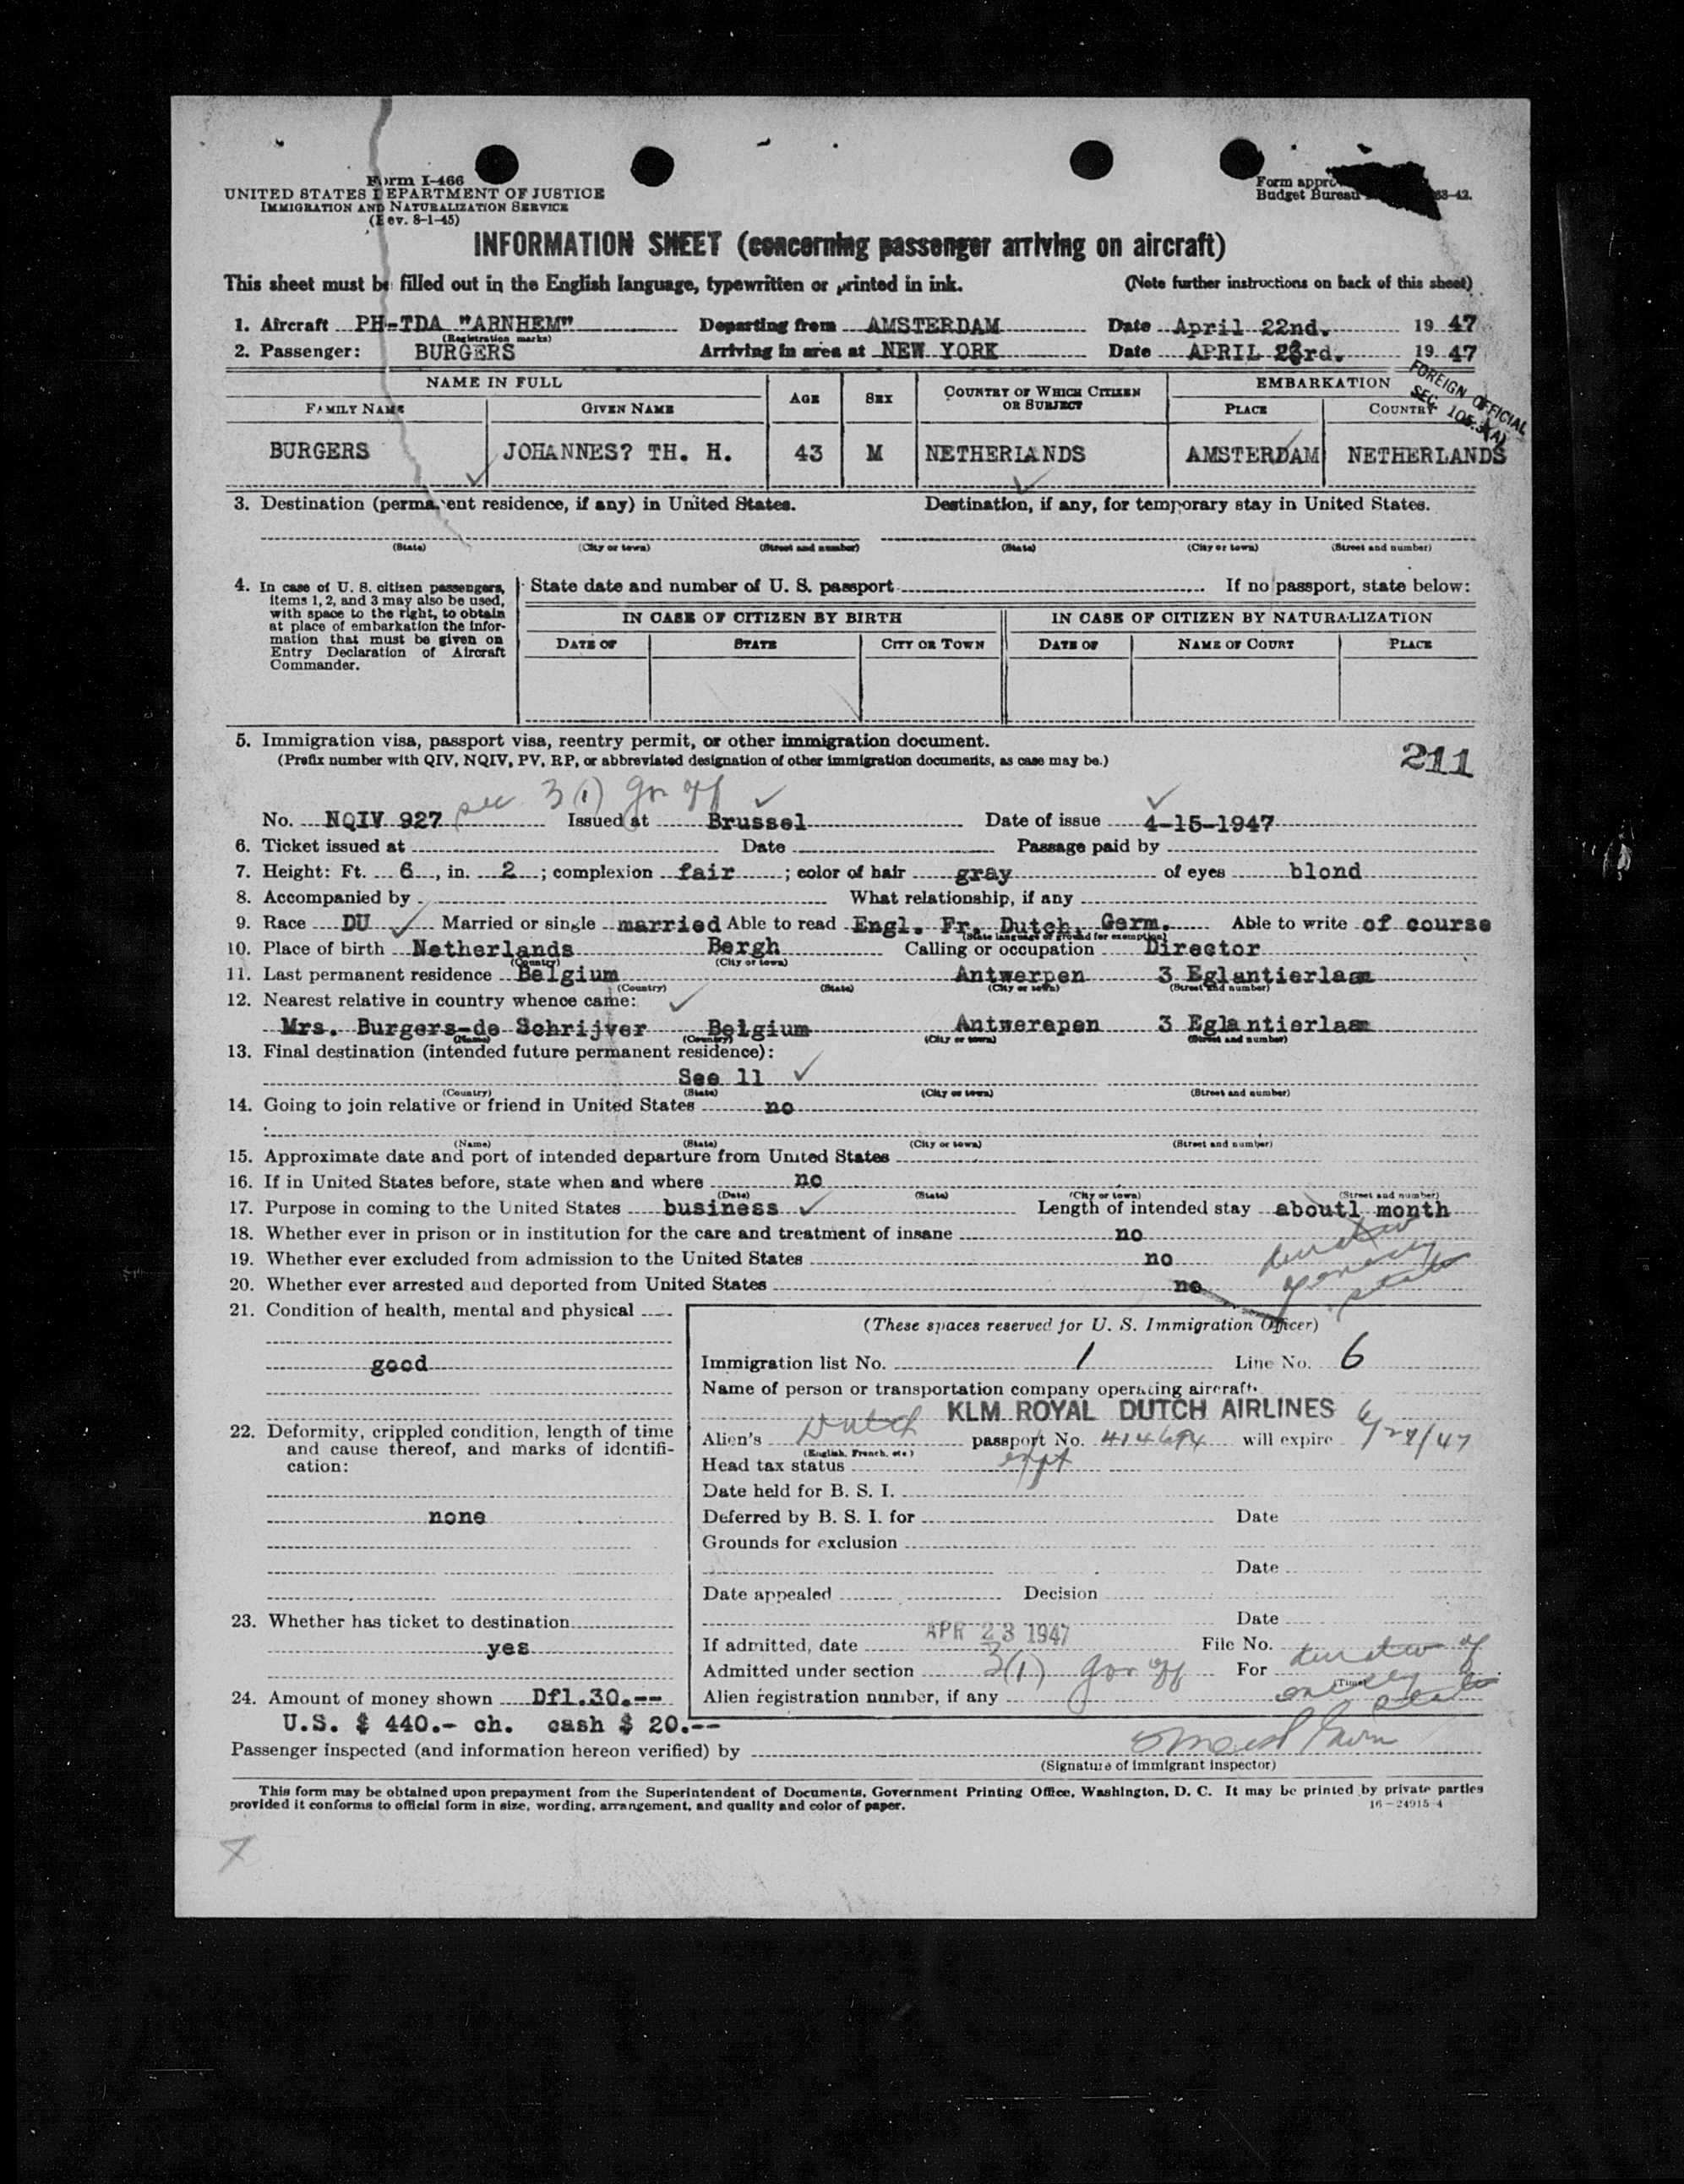 Form I-466
UNITED STATES DEPARTMENT OF JUSTICE
IMMIGRATION AND NATURALIZATION SERVICE
(Rev. 8-1-45)
Form appro
Budget Bureau 63-42.
INFORMATION SHEET (concerning passenger arriving on aircraft)
This sheet must be filled out in the English language, typewritten or printed in ink. (Note further instructions on back of this sheet)
1. Aircraft PH-TDA "ARNHEM" Departing from AMSTERDAM Date April 22nd. 19 47
(Registration marks)
2. Passenger: BURGERS Arriving in area at NEW YORK Date APRIL 23rd. 19 47
FOREIGN OFFICIAL
SEC. 105.3(A)
NAME IN FULL AGE SEX COUNTRY OF WHICH CITIZEN OR SUBJECT EMBARKATION
FAMILY NAME GIVEN NAME PLACE COUNTRY
BURGERS JOHANNES? TH. H. 43 M NETHERLANDS AMSTERDAM NETHERLANDS
3. Destination (permanent residence, if any) in United States. Destination, if any, for temporary stay in United States.
(State) (City or town) (Street and number) (State) (City or town) (Street and number)
4. In case of U. S. citizen passengers, items 1, 2, and 3 may also be used, with space to the right, to obtain at place of embarkation the information that must be given on Entry Declaration of Aircraft Commander.
State date and number of U. S. passport If no passport, state below:
IN CASE OF CITIZEN BY BIRTH IN CASE OF CITIZEN BY NATURALIZATION
DATE OF STATE CITY OR TOWN DATE OF NAME OF COURT PLACE
5. Immigration visa, passport visa, reentry permit, or other immigration document.
(Prefix number with QIV, NQIV, PV, RP, or abbreviated designation of other immigration documents, as case may be.)
211
sec 3(1) gov off
No. NQIV 927 Issued at Brussel Date of issue 4-15-1947
6. Ticket issued at Date Passage paid by
7. Height: Ft. 6, in. 2; complexion fair; color of hair gray of eyes blond
8. Accompanied by What relationship, if any
9. Race DU Married or single married Able to read Engl. Fr. Dutch, Germ. Able to write of course
(State language or ground for exemption)
10. Place of birth Netherlands Bergh Calling or occupation Director
(Country) (City or town)
11. Last permanent residence Belgium Antwerpen 3 Eglantierlaan
(Country) (State) (City or town) (Street and number)
12. Nearest relative in country whence came:
Mrs. Burgers-de Schrijver Belgium Antwerapen 3 Eglantierlaan
(Name) (Country) (City or town) (Street and number)
13. Final destination (intended future permanent residence):
See 11
(Country) (State) (City or town) (Street and number)
14. Going to join relative or friend in United States no
(Name) (State) (City or town) (Street and number)
15. Approximate date and port of intended departure from United States
16. If in United States before, state when and where no
(Date) (State) (City or town) (Street and number)
17. Purpose in coming to the United States business Length of intended stay about1 month
18. Whether ever in prison or in institution for the care and treatment of insane no
19. Whether ever excluded from admission to the United States no
20. Whether ever arrested and deported from United States no
21. Condition of health, mental and physical
good
22. Deformity, crippled condition, length of time and cause thereof, and marks of identification:
none
23. Whether has ticket to destination
yes
24. Amount of money shown Dfl.30.--
U.S. $ 440.- ch. cash $ 20.--
(These spaces reserved for U. S. Immigration Officer)
Immigration list No. 1 Line No. 6
Name of person or transportation company operating aircraft
KLM ROYAL DUTCH AIRLINES
Alien's Dutch passport No. 414694 will expire 6/27/47
(English, French, etc.)
Head tax status expt
Date held for B. S. I.
Deferred by B. S. I. for Date
Grounds for exclusion
Date
Date appealed Decision
Date
If admitted, date APR 23 1947 File No.
Admitted under section 3(1) gov off For
(Time)
Alien registration number, if any
Passenger inspected (and information hereon verified) by
(Signature of immigrant inspector)
This form may be obtained upon prepayment from the Superintendent of Documents, Government Printing Office, Washington, D. C. It may be printed by private parties
provided it conforms to official form in size, wording, arrangement, and quality and color of paper. 16-24915-4